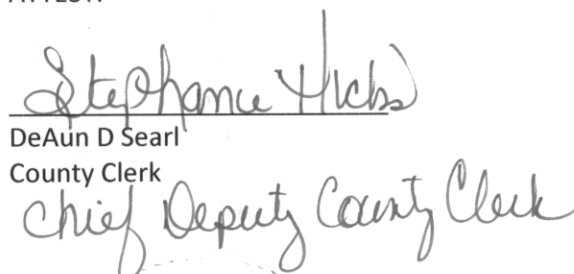 ATTEST:
Stephanie Hicks
DeAun D Searl
County Clerk
Chief Deputy County Clerk